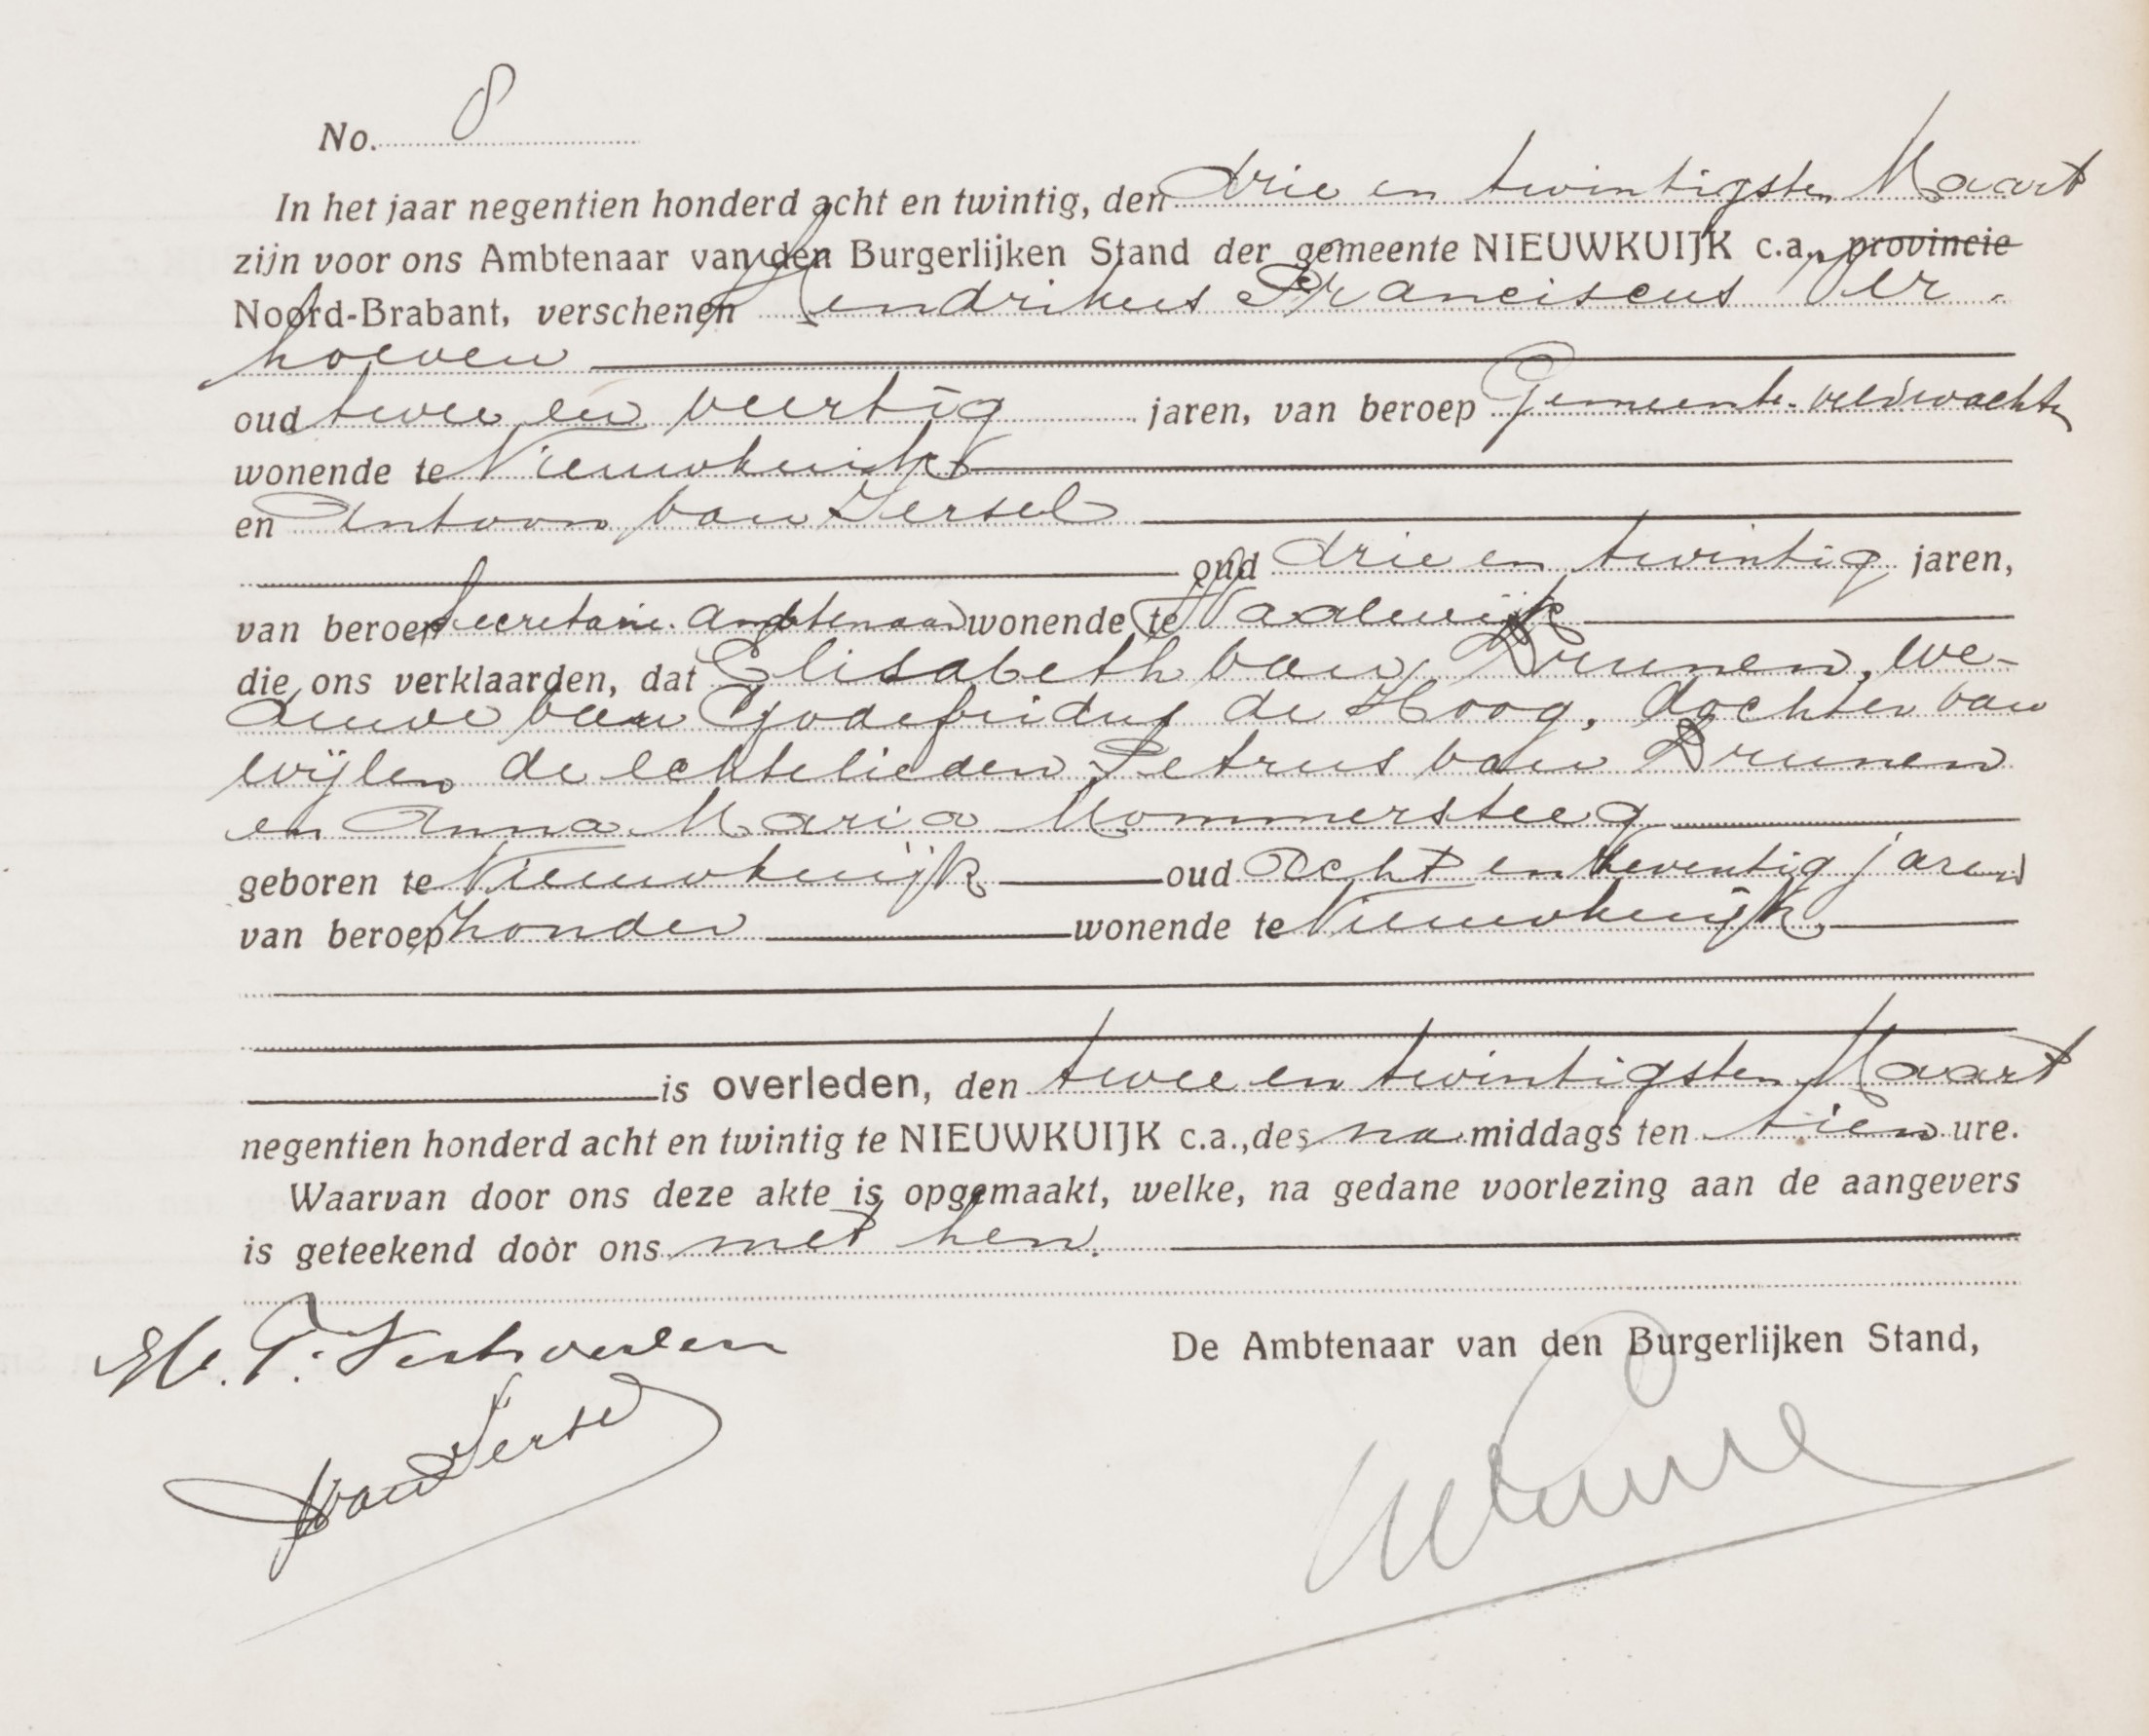 No. 8
In het jaar negentien honderd acht en twintig, den drie en twintigsten Maart
zijn voor ons Ambtenaar van den Burgerlijken Stand der gemeente NIEUWKUIJK c.a., provincie
Noord-Brabant, verschenen Hendrikus Franciscus Ver-
hoeven
oud twee en veertig jaren, van beroep Gemeente-veldwachter
wonende te Nieuwkuijk
en Antoon van Iersel
oud drie en twintig jaren,
van beroep Secretarie-ambtenaar wonende te Waalwijk
die ons verklaarden, dat Elisabeth van Drunen, we-
duwe van Godefridus de Hoog, dochter van
wijlen de echtelieden Petrus van Drunen
en Anna Maria Mommersteeg
geboren te Nieuwkuijk oud acht en zeventig jaren
van beroep zonder wonende te Nieuwkuijk,
is overleden, den twee en twintigsten Maart
negentien honderd acht en twintig te NIEUWKUIJK c.a., des na middags ten tien ure.
Waarvan door ons deze akte is opgemaakt, welke, na gedane voorlezing aan de aangevers
is geteekend door ons met hen.
De Ambtenaar van den Burgerlijken Stand,
H. F. Verhoeven
van Iersel